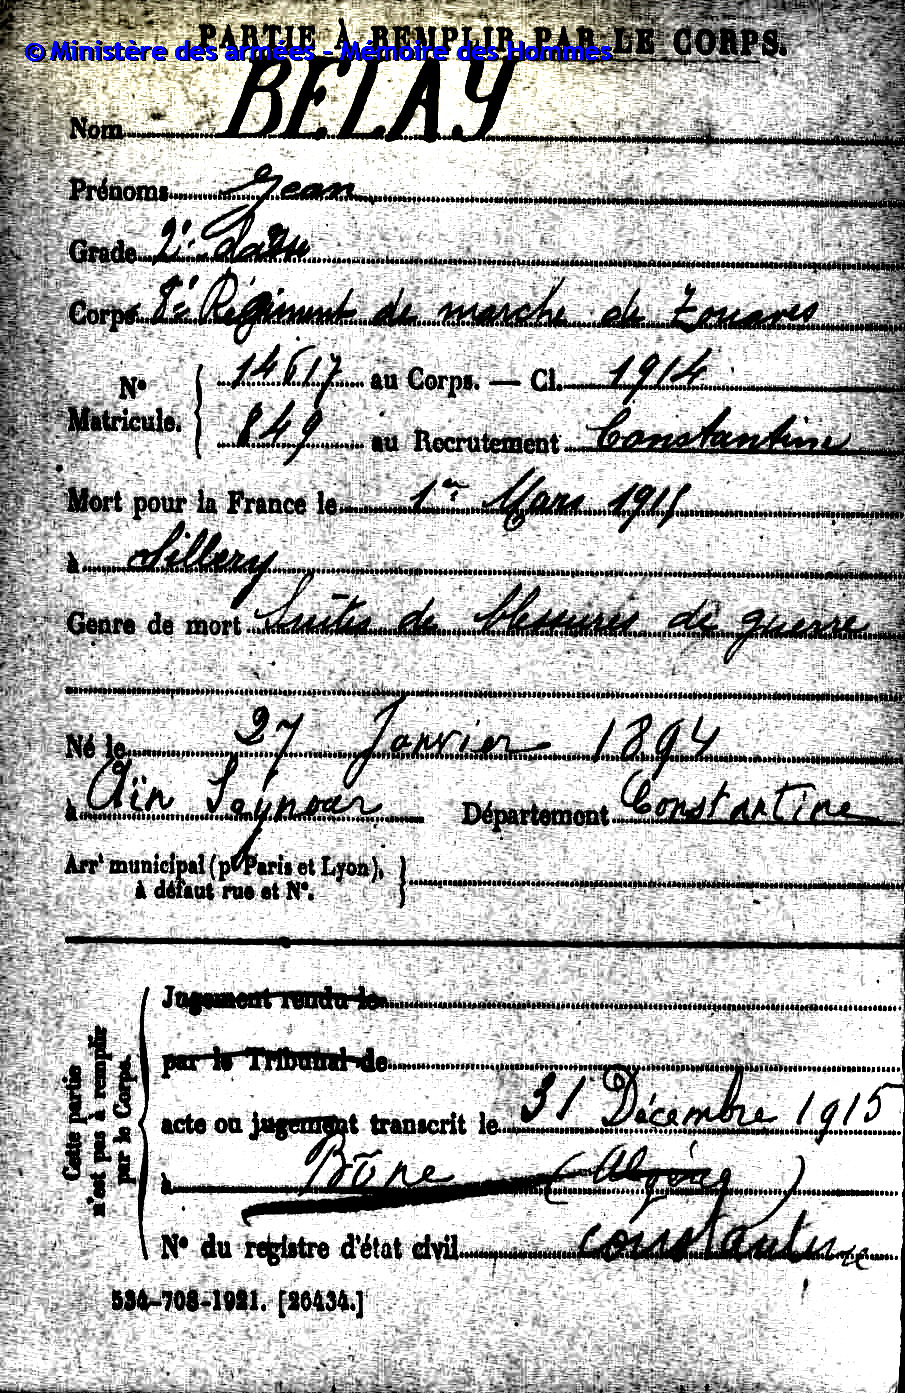 PARTIE À REMPLIR PAR LE CORPS.
© Ministère des armées - Mémoire des Hommes
Nom BELAY
Prénoms Jean
Grade 2e
Corps 8e Régiment de marche de Zouaves
N° Matricule. 14617 au Corps. — Cl. 1914
849 au Recrutement Constantine
Mort pour la France le 1er Mars 1915
à Sillery
Genre de mort Suites de blessures de guerre
Né le 27 Janvier 1894
à Aïn Seynour Département Constantine
Arrt municipal (pr Paris et Lyon),
à défaut rue et N°.
Cette partie n'est pas à remplir par le Corps.
Jugement rendu le
par le Tribunal de
acte ou jugement transcrit le 31 Décembre 1915
à Bône (Algérie)
Constantine
N° du registre d'état civil
534-708-1921. [26434.]